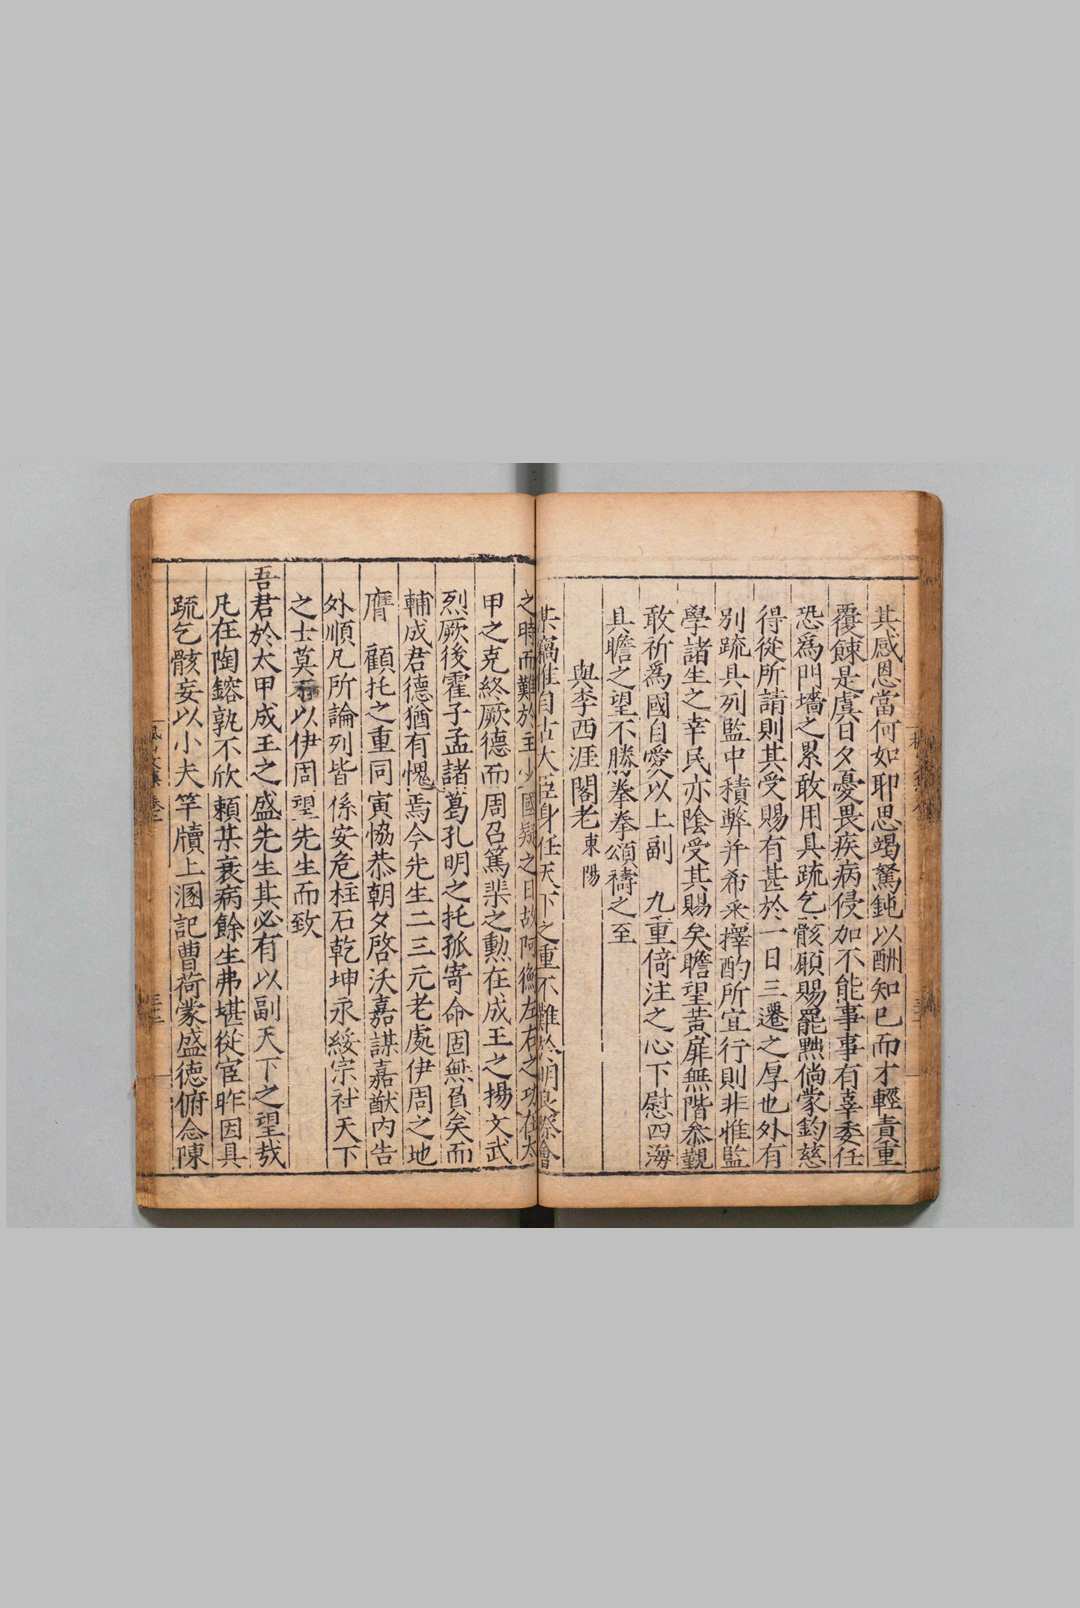 其感恩當何如耶思竭駑鈍以酬知已而才輕責重
覆餗是虞日夕憂畏疾病侵加不能事事有辜委任
恐爲門墻之累敢用具疏乞骸願賜罷黜倘蒙鈞慈
得從所請則其受賜有甚於一日三遷之厚也外有
別疏具列監中積弊并希采擇酌所宜行則非惟監
學諸生之幸民亦陰受其賜矣瞻望黃扉無階叅覲
敢祈爲國自愛以上副 九重倚注之心下慰四海
具瞻之望不勝拳拳頌禱之至
與李西涯閣老東陽
某竊惟自古大臣身任天下之重不難於明良際會
之時而難於主少國疑之日故阿衡左右之功在太
甲之克終厥德而周召篤棐之勳在成王之揚文武
烈厥後霍子孟諸葛孔明之托孤寄命固無負矣而
輔成君德猶有愧焉今先生二三元老處伊周之地
膺 顧托之重同寅恊恭朝夕啓沃嘉謀嘉猷內告
外順凡所論列皆係安危柱石乾坤永綏宗社天下
之士莫不以伊周望先生而致
吾君於太甲成王之盛先生其必有以副天下之望哉
凡在陶鎔孰不欣賴某衰病餘生弗堪從宦昨因具
疏乞骸妄以小夫竿牘上溷記曹荷蒙盛徳俯念陳